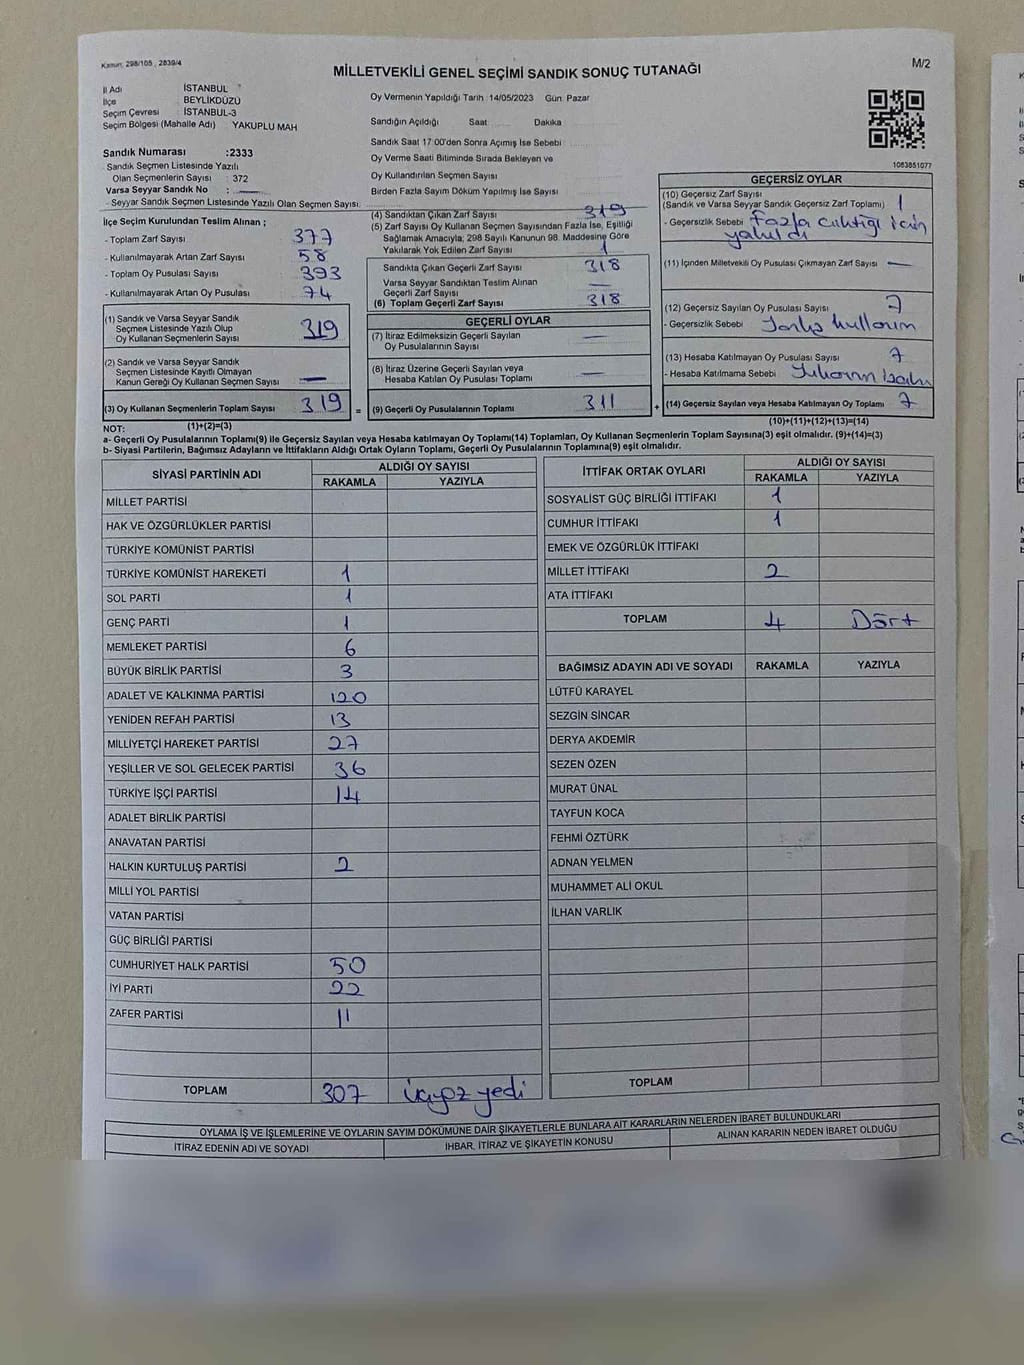 Kanun: 298/105 , 2839/4
MİLLETVEKİLİ GENEL SEÇİMİ SANDIK SONUÇ TUTANAĞI
M/2
İl Adı İSTANBUL
İlçe BEYLİKDÜZÜ
Seçim Çevresi İSTANBUL-3
Seçim Bölgesi (Mahalle Adı) YAKUPLU MAH
Sandık Numarası :2333
Sandık Seçmen Listesinde Yazılı
Olan Seçmenlerin Sayısı : 372
Varsa Seyyar Sandık No : —
- Seyyar Sandık Seçmen Listesinde Yazılı Olan Seçmen Sayısı:
Oy Vermenin Yapıldığı Tarih :14/05/2023 Gün: Pazar
Sandığın Açıldığı Saat Dakika
Sandık Saat 17:00'den Sonra Açımış İse Sebebi
Oy Verme Saati Bitiminde Sırada Bekleyen ve
Oy Kullandırılan Seçmen Sayısı
Birden Fazla Sayım Döküm Yapılmış İse Sayısı
1083851077
İlçe Seçim Kurulundan Teslim Alınan ;
- Toplam Zarf Sayısı 377
- Kullanılmayarak Artan Zarf Sayısı 58
- Toplam Oy Pusulası Sayısı 393
- Kullanılmayarak Artan Oy Pusulası 74
(1) Sandık ve Varsa Seyyar Sandık
Seçmen Listesinde Yazılı Olup
Oy Kullanan Seçmenlerin Sayısı 319
(2) Sandık ve Varsa Seyyar Sandık
Seçmen Listesinde Kayıtlı Olmayan
Kanun Gereği Oy Kullanan Seçmen Sayısı —
(3) Oy Kullanan Seçmenlerin Toplam Sayısı 319 =
(4) Sandıktan Çıkan Zarf Sayısı 319
(5) Zarf Sayısı Oy Kullanan Seçmen Sayısından Fazla İse, Eşitliği
Sağlamak Amacıyla, 298 Sayılı Kanunun 98. Maddesine Göre
Yakılarak Yok Edilen Zarf Sayısı 1
Sandıkta Çıkan Geçerli Zarf Sayısı 318
Varsa Seyyar Sandıktan Teslim Alınan
Geçerli Zarf Sayısı —
(6) Toplam Geçerli Zarf Sayısı 318
GEÇERLİ OYLAR
(7) İtiraz Edilmeksizin Geçerli Sayılan
Oy Pusulalarının Sayısı —
(8) İtiraz Üzerine Geçerli Sayılan veya
Hesaba Katılan Oy Pusulası Toplamı —
(9) Geçerli Oy Pusulalarının Toplamı 311 +
GEÇERSİZ OYLAR
(10) Geçersiz Zarf Sayısı
(Sandık ve Varsa Seyyar Sandık Geçersiz Zarf Toplamı) 1
- Geçersizlik Sebebi Fazla çıktığı için
yakıldı
(11) İçinden Milletvekili Oy Pusulası Çıkmayan Zarf Sayısı —
(12) Geçersiz Sayılan Oy Pusulası Sayısı 7
- Geçersizlik Sebebi Yanlış kullanım
(13) Hesaba Katılmayan Oy Pusulası Sayısı 7
- Hesaba Katılmama Sebebi
(14) Geçersiz Sayılan veya Hesaba Katılmayan Oy Toplamı 7
(10)+(11)+(12)+(13)=(14)
NOT: (1)+(2)=(3)
a- Geçerli Oy Pusulalarının Toplamı(9) ile Geçersiz Sayılan veya Hesaba katılmayan Oy Toplamı(14) Toplamları, Oy Kullanan Seçmenlerin Toplam Sayısına(3) eşit olmalıdır. (9)+(14)=(3)
b- Siyasi Partilerin, Bağımsız Adayların ve İttifakların Aldığı Ortak Oyların Toplamı, Geçerli Oy Pusulalarının Toplamına(9) eşit olmalıdır.
SİYASİ PARTİNİN ADI ALDIĞI OY SAYISI
RAKAMLA YAZIYLA
MİLLET PARTİSİ
HAK VE ÖZGÜRLÜKLER PARTİSİ
TÜRKİYE KOMÜNİST PARTİSİ
TÜRKİYE KOMÜNİST HAREKETİ 1
SOL PARTİ 1
GENÇ PARTİ 1
MEMLEKET PARTİSİ 6
BÜYÜK BİRLİK PARTİSİ 3
ADALET VE KALKINMA PARTİSİ 120
YENİDEN REFAH PARTİSİ 13
MİLLİYETÇİ HAREKET PARTİSİ 27
YEŞİLLER VE SOL GELECEK PARTİSİ 36
TÜRKİYE İŞÇİ PARTİSİ 14
ADALET BİRLİK PARTİSİ
ANAVATAN PARTİSİ
HALKIN KURTULUŞ PARTİSİ 2
MİLLİ YOL PARTİSİ
VATAN PARTİSİ
GÜÇ BİRLİĞİ PARTİSİ
CUMHURİYET HALK PARTİSİ 50
İYİ PARTİ 22
ZAFER PARTİSİ 11
TOPLAM 307 üçyüz yedi
İTTİFAK ORTAK OYLARI ALDIĞI OY SAYISI
RAKAMLA YAZIYLA
SOSYALİST GÜÇ BİRLİĞİ İTTİFAKI 1
CUMHUR İTTİFAKI 1
EMEK VE ÖZGÜRLÜK İTTİFAKI
MİLLET İTTİFAKI 2
ATA İTTİFAKI
TOPLAM 4 Dört
BAĞIMSIZ ADAYIN ADI VE SOYADI RAKAMLA YAZIYLA
LÜTFÜ KARAYEL
SEZGİN SİNCAR
DERYA AKDEMİR
SEZEN ÖZEN
MURAT ÜNAL
TAYFUN KOCA
FEHMİ ÖZTÜRK
ADNAN YELMEN
MUHAMMET ALİ OKUL
İLHAN VARLIK
TOPLAM
OYLAMA İŞ VE İŞLEMLERİNE VE OYLARIN SAYIM DÖKÜMÜNE DAİR ŞİKAYETLERLE BUNLARA AİT KARARLARIN NELERDEN İBARET BULUNDUKLARI
İTİRAZ EDENİN ADI VE SOYADI İHBAR, İTİRAZ VE ŞİKAYETİN KONUSU ALINAN KARARIN NEDEN İBARET OLDUĞU